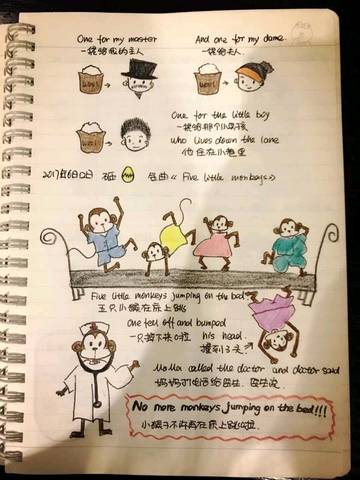 One for my master
一袋给我的主人
And one for my dame.
一袋给夫人
WOOL
WOOL
WOOL
One for the little boy
一袋给那个小男孩
who lives down the lane
他住在小巷里
2017年6月02日
名曲《Five little monkeys》
Five little monkeys jumping on the bed
五只小猴在床上跳
one fell off and bumped his head.
一只掉下来啦 撞到了头
Mama called the doctor and doctor said
妈妈打电话给医生 医生说
No more monkeys jumping on the bed!!!
小猴子不许再在床上跳啦